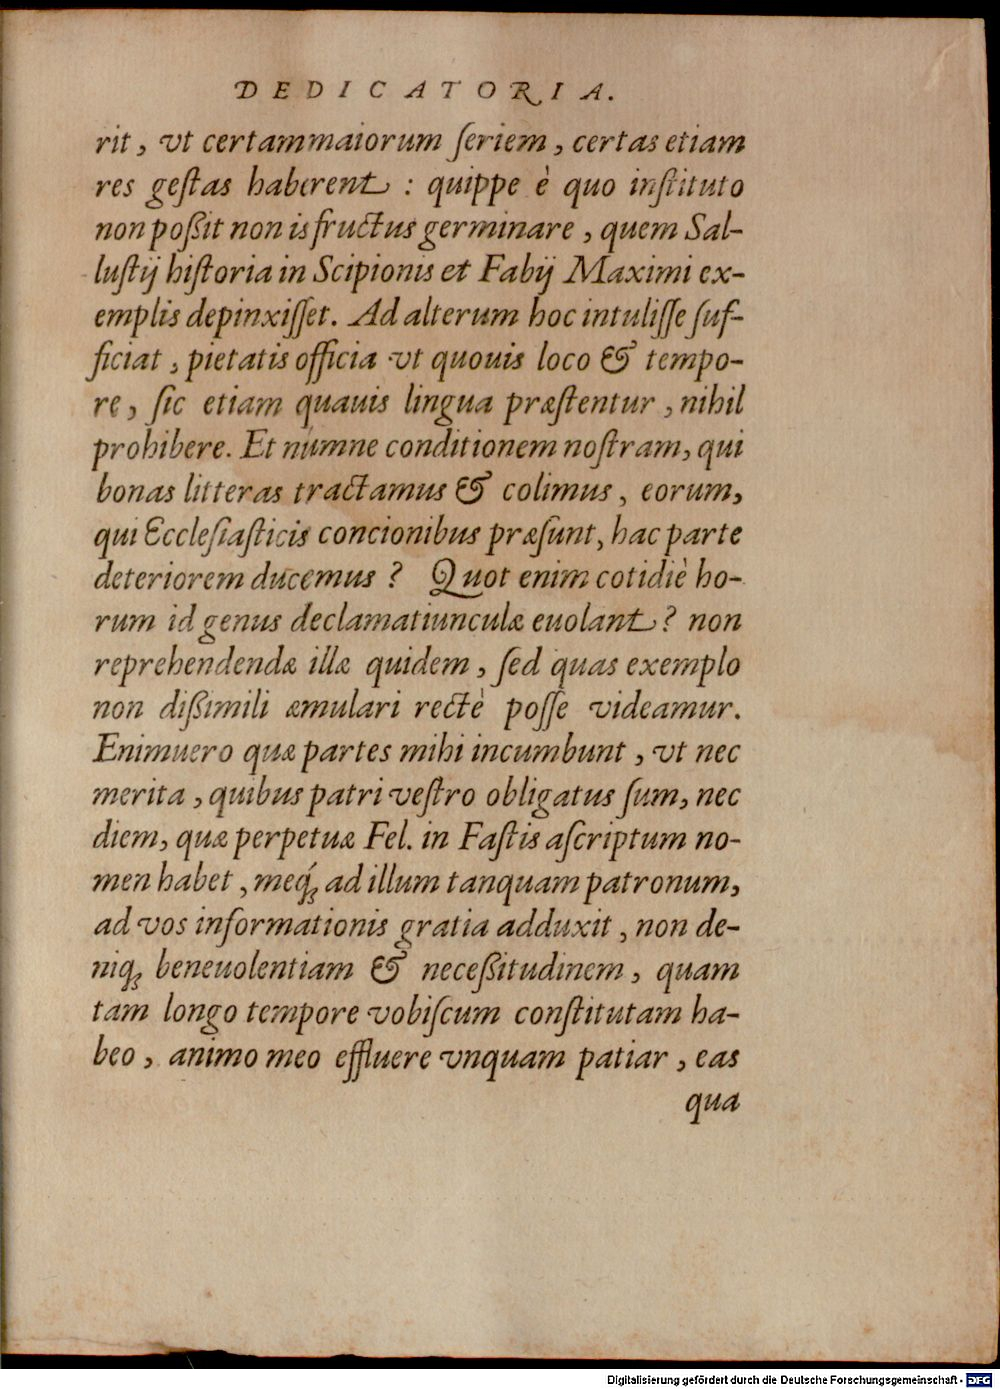 DEDICATORIA.
rit, vt certam maiorum ſeriem, certas etiam
res geſtas haberent : quippe è quo inſtituto
non poßit non is fructus germinare, quem Sal-
luſtij hiſtoria in Scipionis et Fabij Maximi ex-
emplis depinxiſſet. Ad alterum hoc intuliſſe ſuf-
ficiat, pietatis officia vt quouis loco & tempo-
re, ſic etiam quauis lingua præſtentur, nihil
prohibere. Et númne conditionem noſtram, qui
bonas litteras tractamus & colimus, eorum,
qui Eccleſiaſticis concionibus præſunt, hac parte
deteriorem ducemus ? Quot enim cotidiè ho-
rum id genus declamatiunculæ euolant ? non
reprehendendæ illæ quidem, ſed quas exemplo
non dißimili æmulari rectè poſſe videamur.
Enimuero quæ partes mihi incumbunt, vt nec
merita, quibus patri veſtro obligatus ſum, nec
diem, quæ perpetuæ Fel. in Faſtis aſcriptum no-
men habet, meq́; ad illum tanquam patronum,
ad vos informationis gratia adduxit, non de-
niq; beneuolentiam & neceßitudinem, quam
tam longo tempore vobiſcum conſtitutam ha-
beo, animo meo effluere vnquam patiar, eas
qua
Digitalisierung gefördert durch die Deutsche Forschungsgemeinschaft - DFG